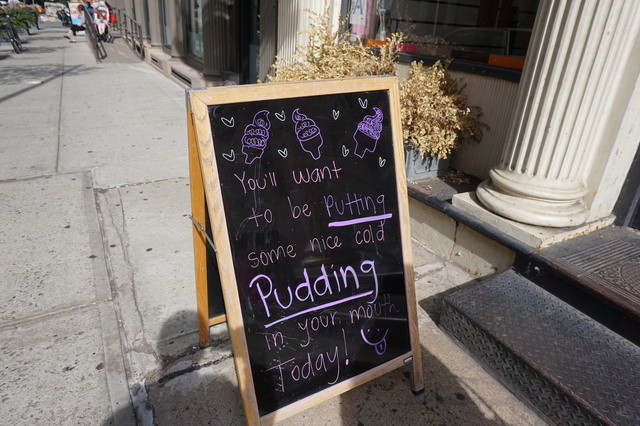 You'll want
to be Putting
some nice cold
Pudding
in your mouth
Today!